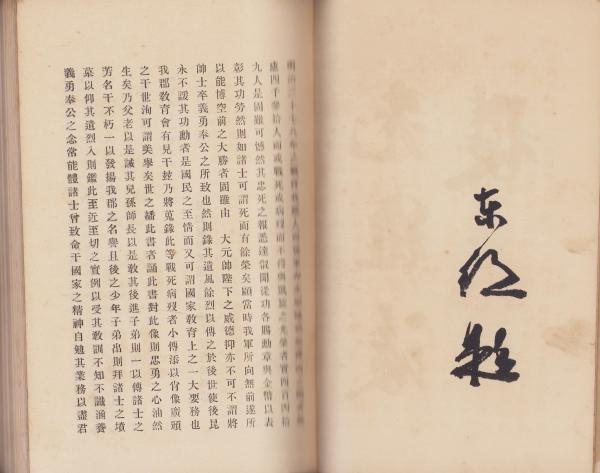 題
明治三十七八年
慮四千參拾人而或戰死或病歿而不得與凱旋之光榮者實四百四拾
九人是固雖可憾然其忠死之報悉達叡聞從功各賜勳章與金幣以表
彰其功勞然則如諸士可謂死而有餘榮矣顧當時我軍所向無前遂所
以能博空前之大勝者固雖由 大元帥陛下之威德抑亦不可不謂將
帥士卒義勇奉公之所致也然則錄其遺風餘烈以傳之於後世使後昆
永不諼其功勳者是國民之至情而又可謂國家敎育上之一大要務也
我郡敎育會有見于玆乃將蒐錄此等戰死病歿者小傳添以肖像廣頒
之于世洵可謂美擧矣世之繙此書者誦此書對此像則忠勇之心油然
生矣乃父老以是誡其兒孫師長以是敎其後進子弟則一以傳諸士之
芳名于不朽一以發揚我郡之名譽且後之少年子弟出則拜諸士之墳
墓以仰其遺烈入則鑑此至近至切之實例以受其敎訓不知不識涵養
義勇奉公之念常能體諸士曾致命于國家之精神自勉其業務以盡君